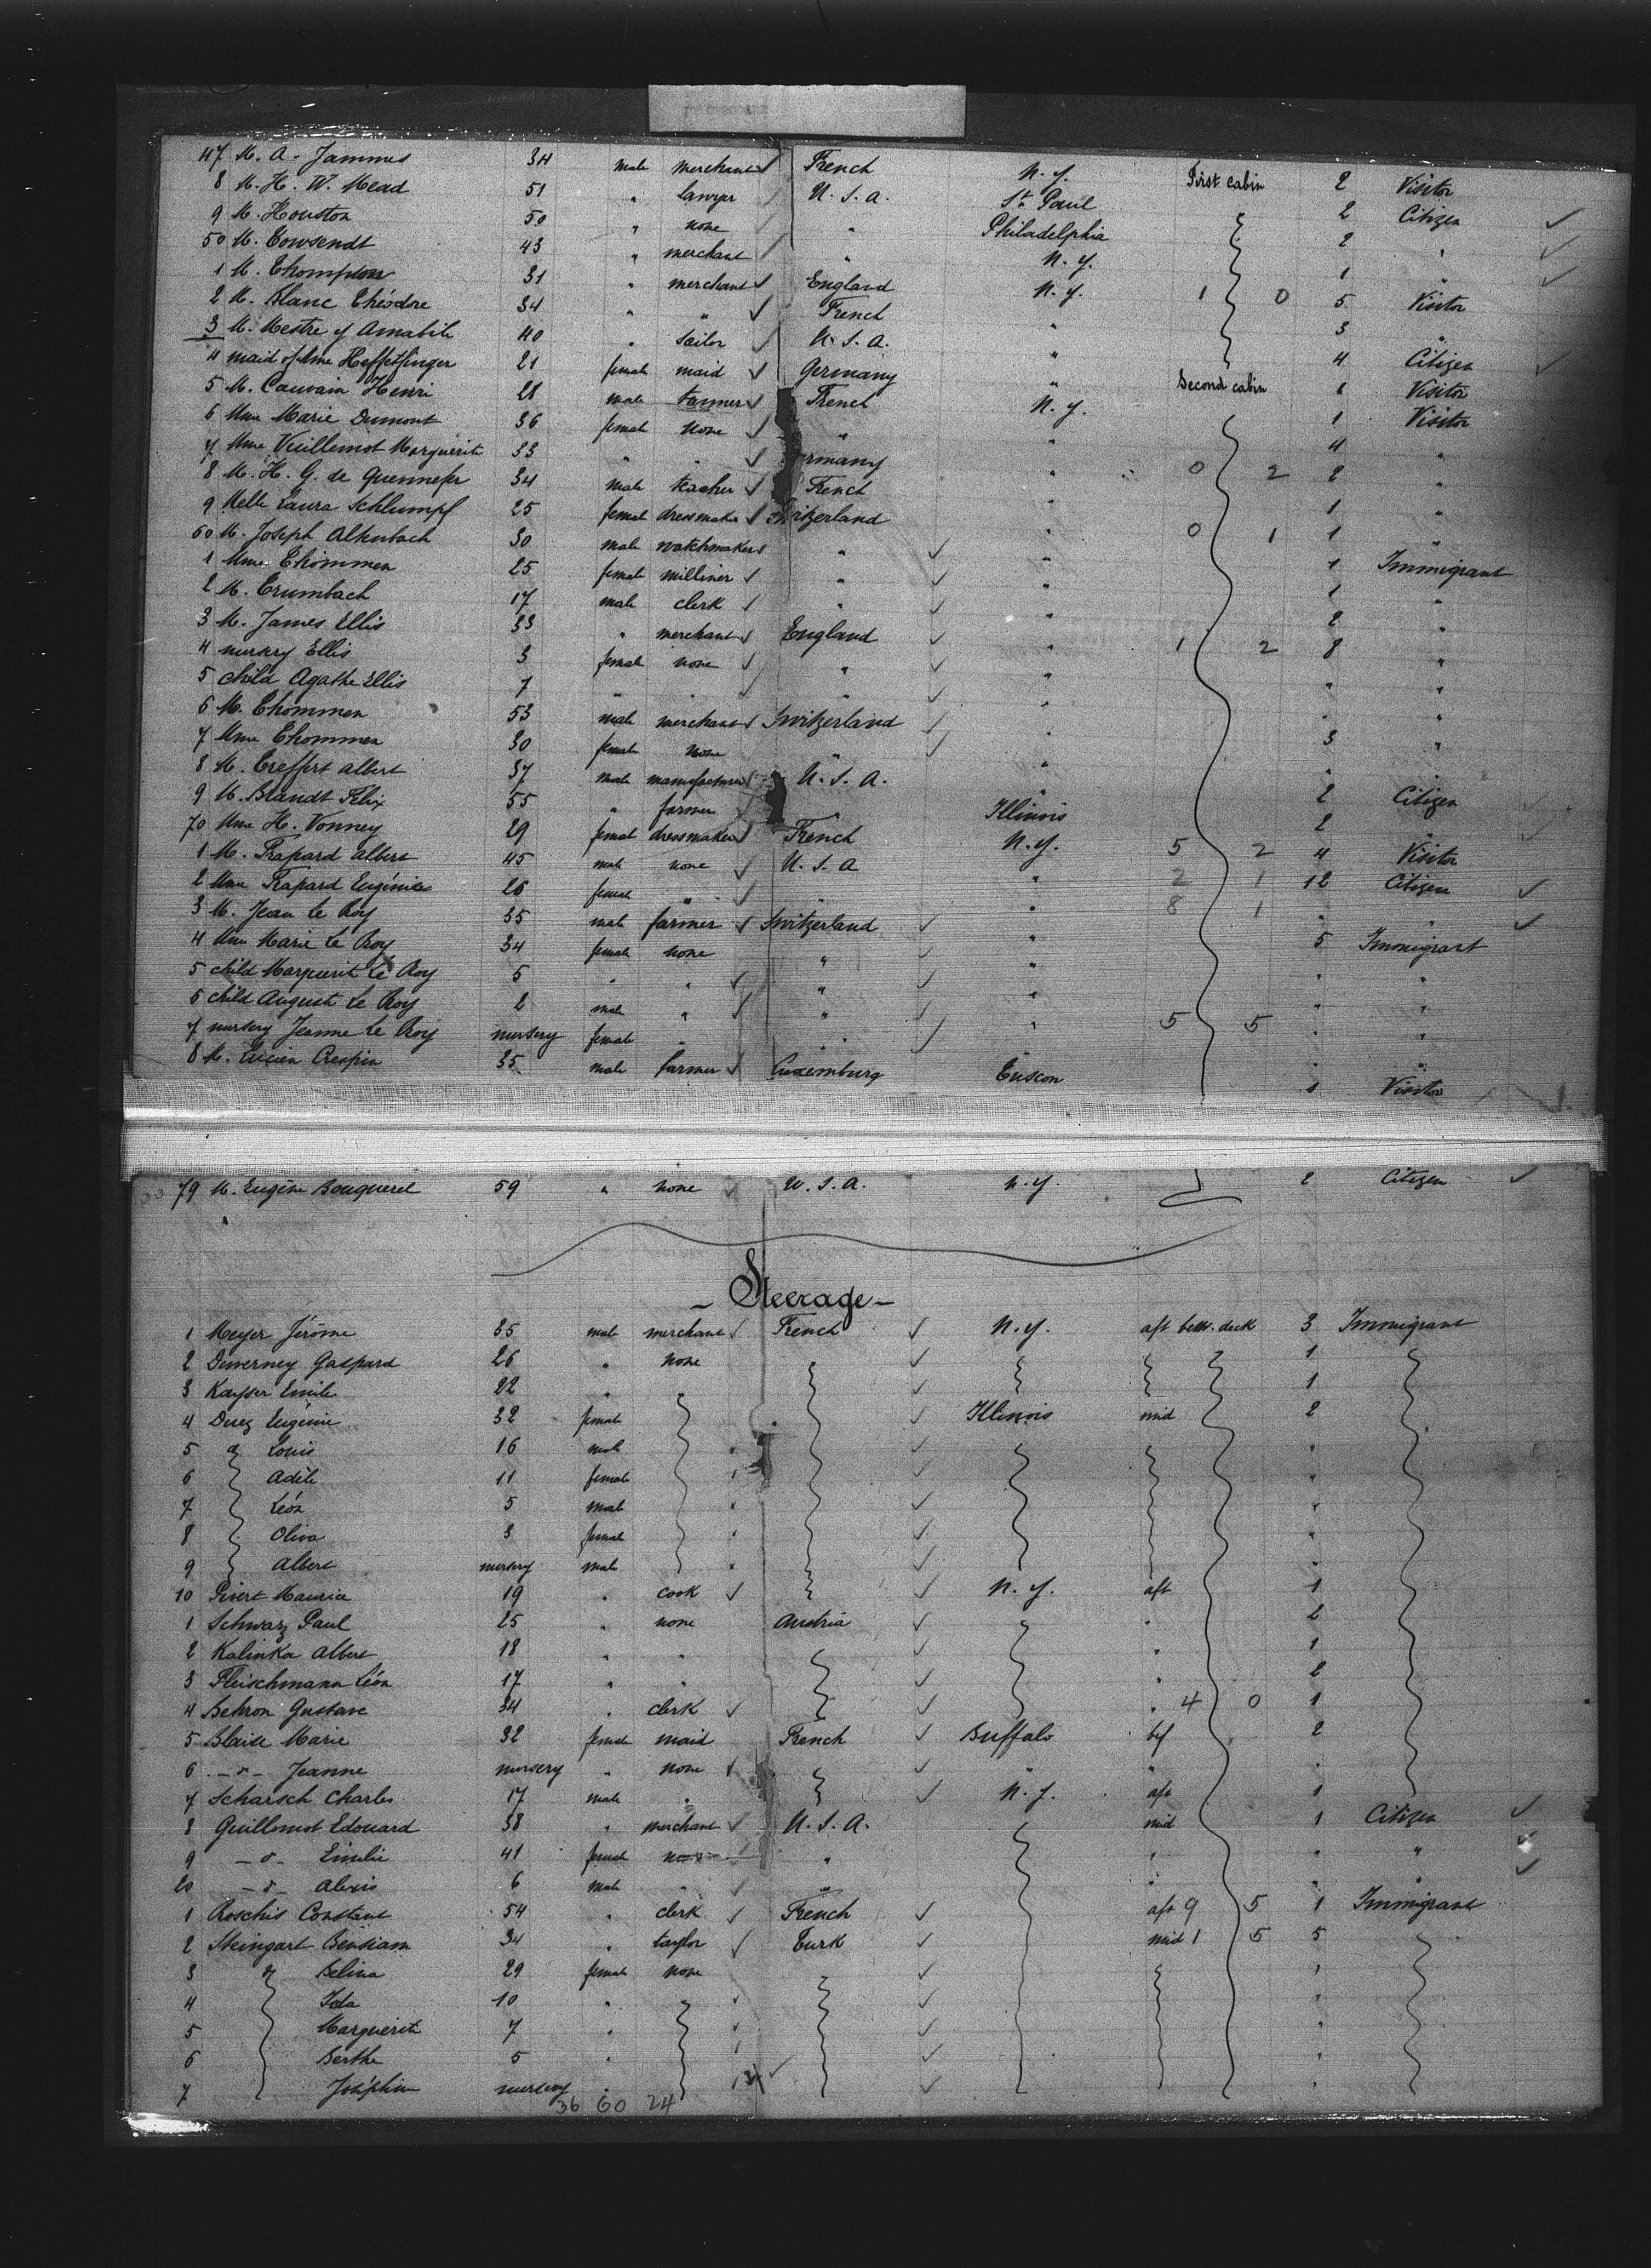 47 M. A. Jammes 34 male merchant French N.Y. First cabin 2 Visitor
8 M. H. W. Mead 51 " lawyer U.S.A. St. Paul 2 Citizen
9 M. Houston 50 " none " Philadelphia 2 "
50 M. Towsendt 43 " merchant " N.Y. 1 "
1 M. Thompson 31 " merchant England N.Y. 1 0 5 Visitor
2 M. Blanc Théodore 34 " " French " 3 "
3 M. Mestre y Amabile 40 " tailor U.S.A. " 4 Citizen
4 maid of Mme Heffelfinger 21 female maid Germany " Second cabin 1 Visitor
5 M. Cauvain Henri 28 male tanner French N.Y. 1 Visitor
6 Mme Marie Dumont 36 female none " " 4 "
7 Mme Vuillemot Marguerite 33 " " Germany " 0 2 2 "
8 M. H. G. de Quennefer 34 male teacher French " 1 "
9 Melle Laura Schlumpf 25 female dressmaker Switzerland " 0 1 1 "
60 M. Joseph Altenbach 30 male watchmaker " " 1 Immigrant
1 Mme Thommen 25 female milliner " " 1 "
2 M. Trumbach 17 male clerk " " 2 "
3 M. James Ellis 33 " merchant England " 1 2 8 "
4 nursery Ellis 3 female none " " " "
5 child Agathe Ellis 7 " " " " " "
6 M. Thommen 53 male merchant Switzerland " 3 "
7 Mme Thommen 30 female none " " " "
8 M. Treffert Albert 37 male manufacturer U.S.A. " 2 Citizen
9 M. Brandt Félix 55 " farmer " Illinois 2 "
70 Mme H. Vonney 29 female dressmaker French N.Y. 5 2 4 Visitor
1 M. Frapard Albert 45 male none U.S.A " 2 1 12 Citizen
2 Mme Frapard Eugénie 26 female " " " 8 1 " "
3 M. Jean Le Roy 35 male farmer Switzerland " 5 Immigrant
4 Mme Marie Le Roy 34 female none " " " "
5 child Marguerite Le Roy 5 " " " " " "
6 child Auguste Le Roy 2 male " " " 5 5 " "
7 nursery Jeanne Le Roy nursery female " " " "
8 M. Lucien Crespin 35 male farmer Luxemburg Tuscon 1 Visitor
79 M. Eugène Bouquerel 59 " none U.S.A. N.Y. 2 Citizen
- Steerage -
1 Meyer Jérôme 35 male merchant French N.Y. aft betw. deck 3 Immigrant
2 Duverney Gaspard 26 " none 1
3 Kayser Emile 22 " " 1
4 Duez Eugénie 32 female Illinois mid 2
5 d° Louis 16 male "
6 Adèle 11 female "
7 Léon 5 male "
8 Oliva 3 female "
9 Albert nursery male "
10 Pivert Maurice 19 " cook N.Y. aft 1
1 Schwarz Paul 25 " none Austria " 2
2 Kalinka Albert 18 " " " 1
3 Fleischmann Léon 17 " " " 2
4 Behron Gustave 34 " clerk " 4 0 1
5 Blaise Marie 32 female maid French Buffalo bef 2
6 - d° - Jeanne nursery " none " " "
7 Scharsch Charles 17 male " N.Y. aft 1
8 Guillemot Edouard 38 " merchant U.S.A. mid 1 Citizen
9 - d° - Emilie 41 female none " " " "
20 - d° - Alexis 6 male " " " " "
1 Roschis Constant 54 " clerk French aft 9 5 1 Immigrant
2 Steingart Bensiam 34 " taylor Turk mid 1 5 5
3 d° Belina 29 female none "
4 Ida 10 " "
5 Marguerite 7 " "
6 Berthe 5 " "
7 Joséphine nursery " "
36 60 24